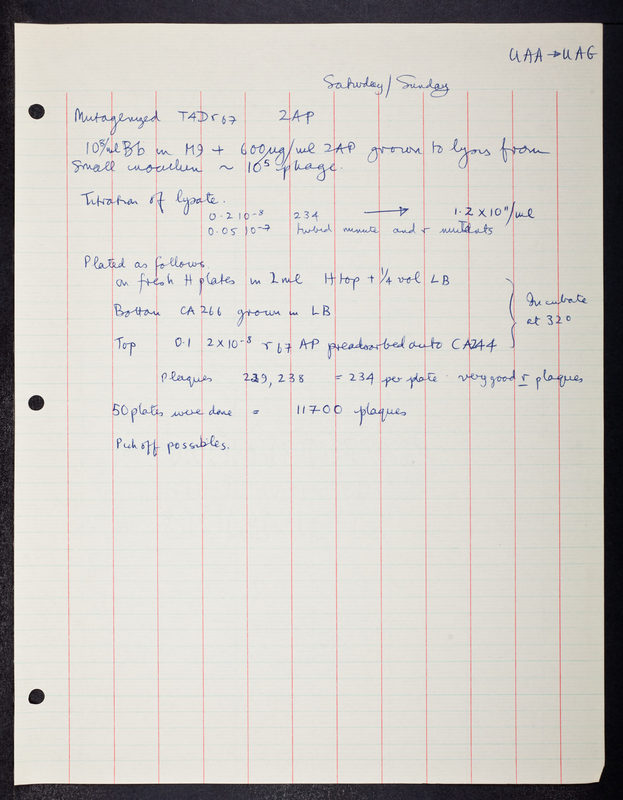 UAA → UAG
Saturday/Sunday
Mutagenized T4Dr67 2AP
10⁵/ml Bb in M9 + 600µg/ml 2AP grown to lysis from
Small inoculum ~ 10⁵ phage.
Titration of lysate.
0.2 10⁻⁸ 234 → 1.2 x 10¹¹/ml
0.05 10⁻⁷ turbid minute and r mutants
Plated as follows
on fresh H plates in 2ml H top + ¼ vol LB
Bottom CA266 grown in LB
Top 0.1 2x10⁻⁸ r67 AP preadsorbed onto CA244
Incubate
at 32°
Plaques 229, 238 = 234 per plate. very good r plaques
50 plates were done = 11700 plaques
Pick off possibles.